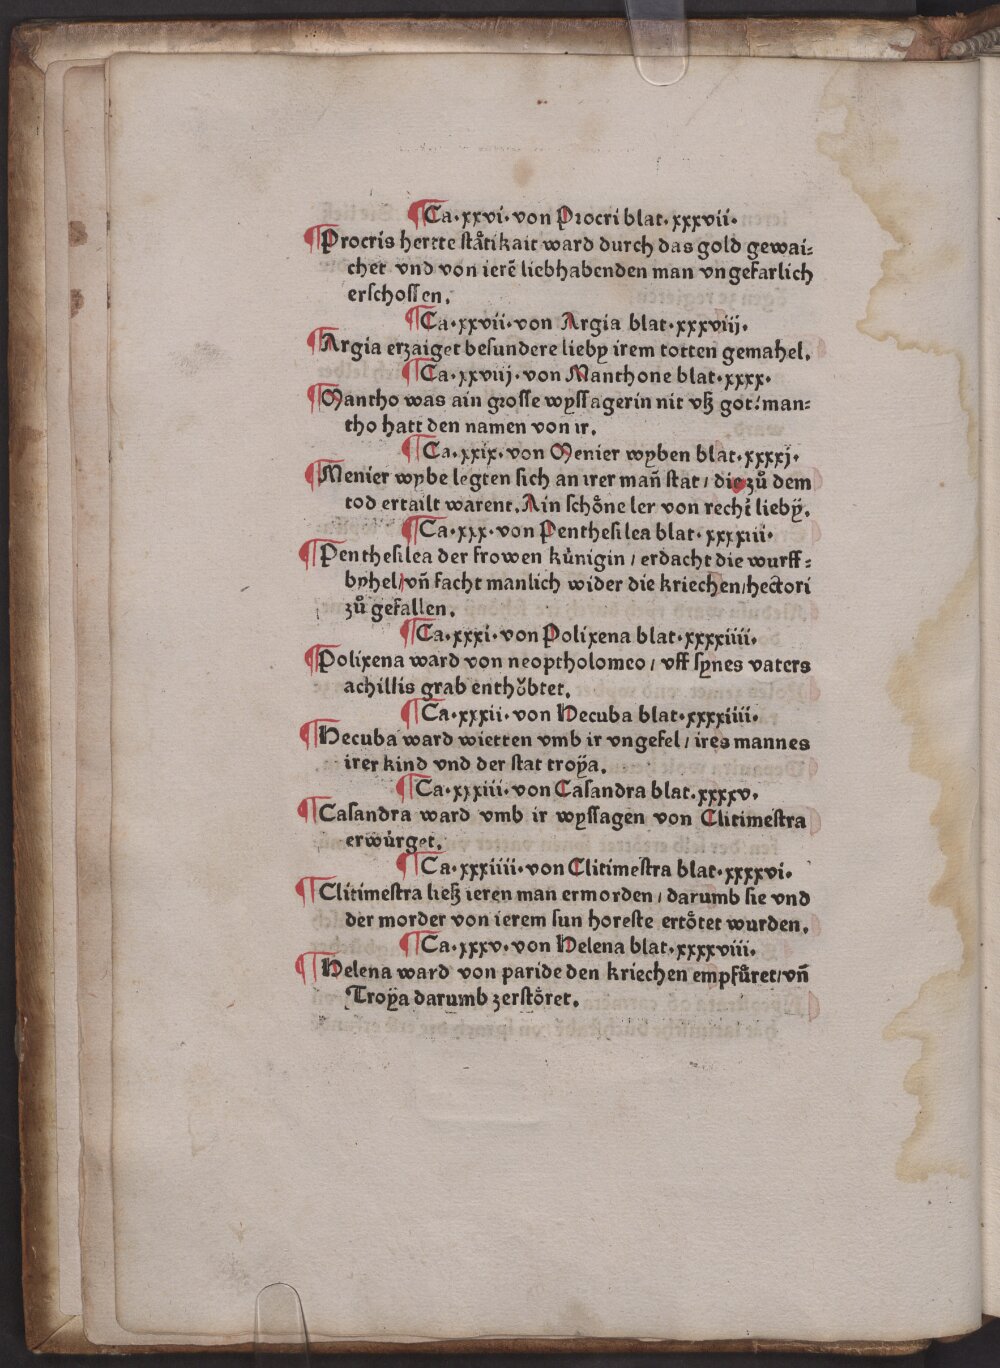 ¶Ca·xxvi·von Procri blat·xxxvii·
¶Procris hertte ståtikait ward durch das gold gewai⸗
chet vnd von ierē liebhabenden man vngefarlich
erschossen.
¶Ca·xxvii·von Argia blat·xxxviij·
¶Argia erzaiget besundere lieby irem totten gemahel.
¶Ca·xxviij·von Manthone blat·xxxx·
¶Mantho was ain grosse wyssagerin nit vß got/man⸗
tho hatt den namen von ir.
¶Ca·xxix·von Menier wyben blat·xxxxj·
¶Menier wybe legten sich an irer mañ stat / die zů dem
tod ertailt warent. Ain schoͤne ler von recht̄ liebÿ.
¶Ca·xxx·von Penthesilea blat·xxxxiii·
¶Penthesilea der frowen kúnigin / erdacht die wurff⸗
byhel/vñ facht manlich wider die kriechen/hectori
zů gefallen.
¶Ca·xxxi·von Polixena blat·xxxxiiii·
¶Polixena ward von neoptholomeo / vff synes vaters
achillis grab enthoͤbtet.
¶Ca·xxxii·von Hecuba blat·xxxxiiii·
¶Hecuba ward wietten vmb ir vngefel / ires mannes
irer kind vnd der stat troÿa.
¶Ca·xxxiii·von Casandra blat.xxxxv·
¶Casandra ward vmb ir wyssagen von Clitimestra
erwúrget.
¶Ca·xxxiiii·von Clitimestra blat·xxxxvi·
¶Clitimestra ließ ieren man ermorden / darumb sie vnd
der morder von ierem sun horeste ertoͤtet wurden.
¶Ca·xxxv·von Helena blat·xxxxviii·
¶Helena ward von paride den kriechen empfůret/vñ
Troÿa darumb zerstoͤret.